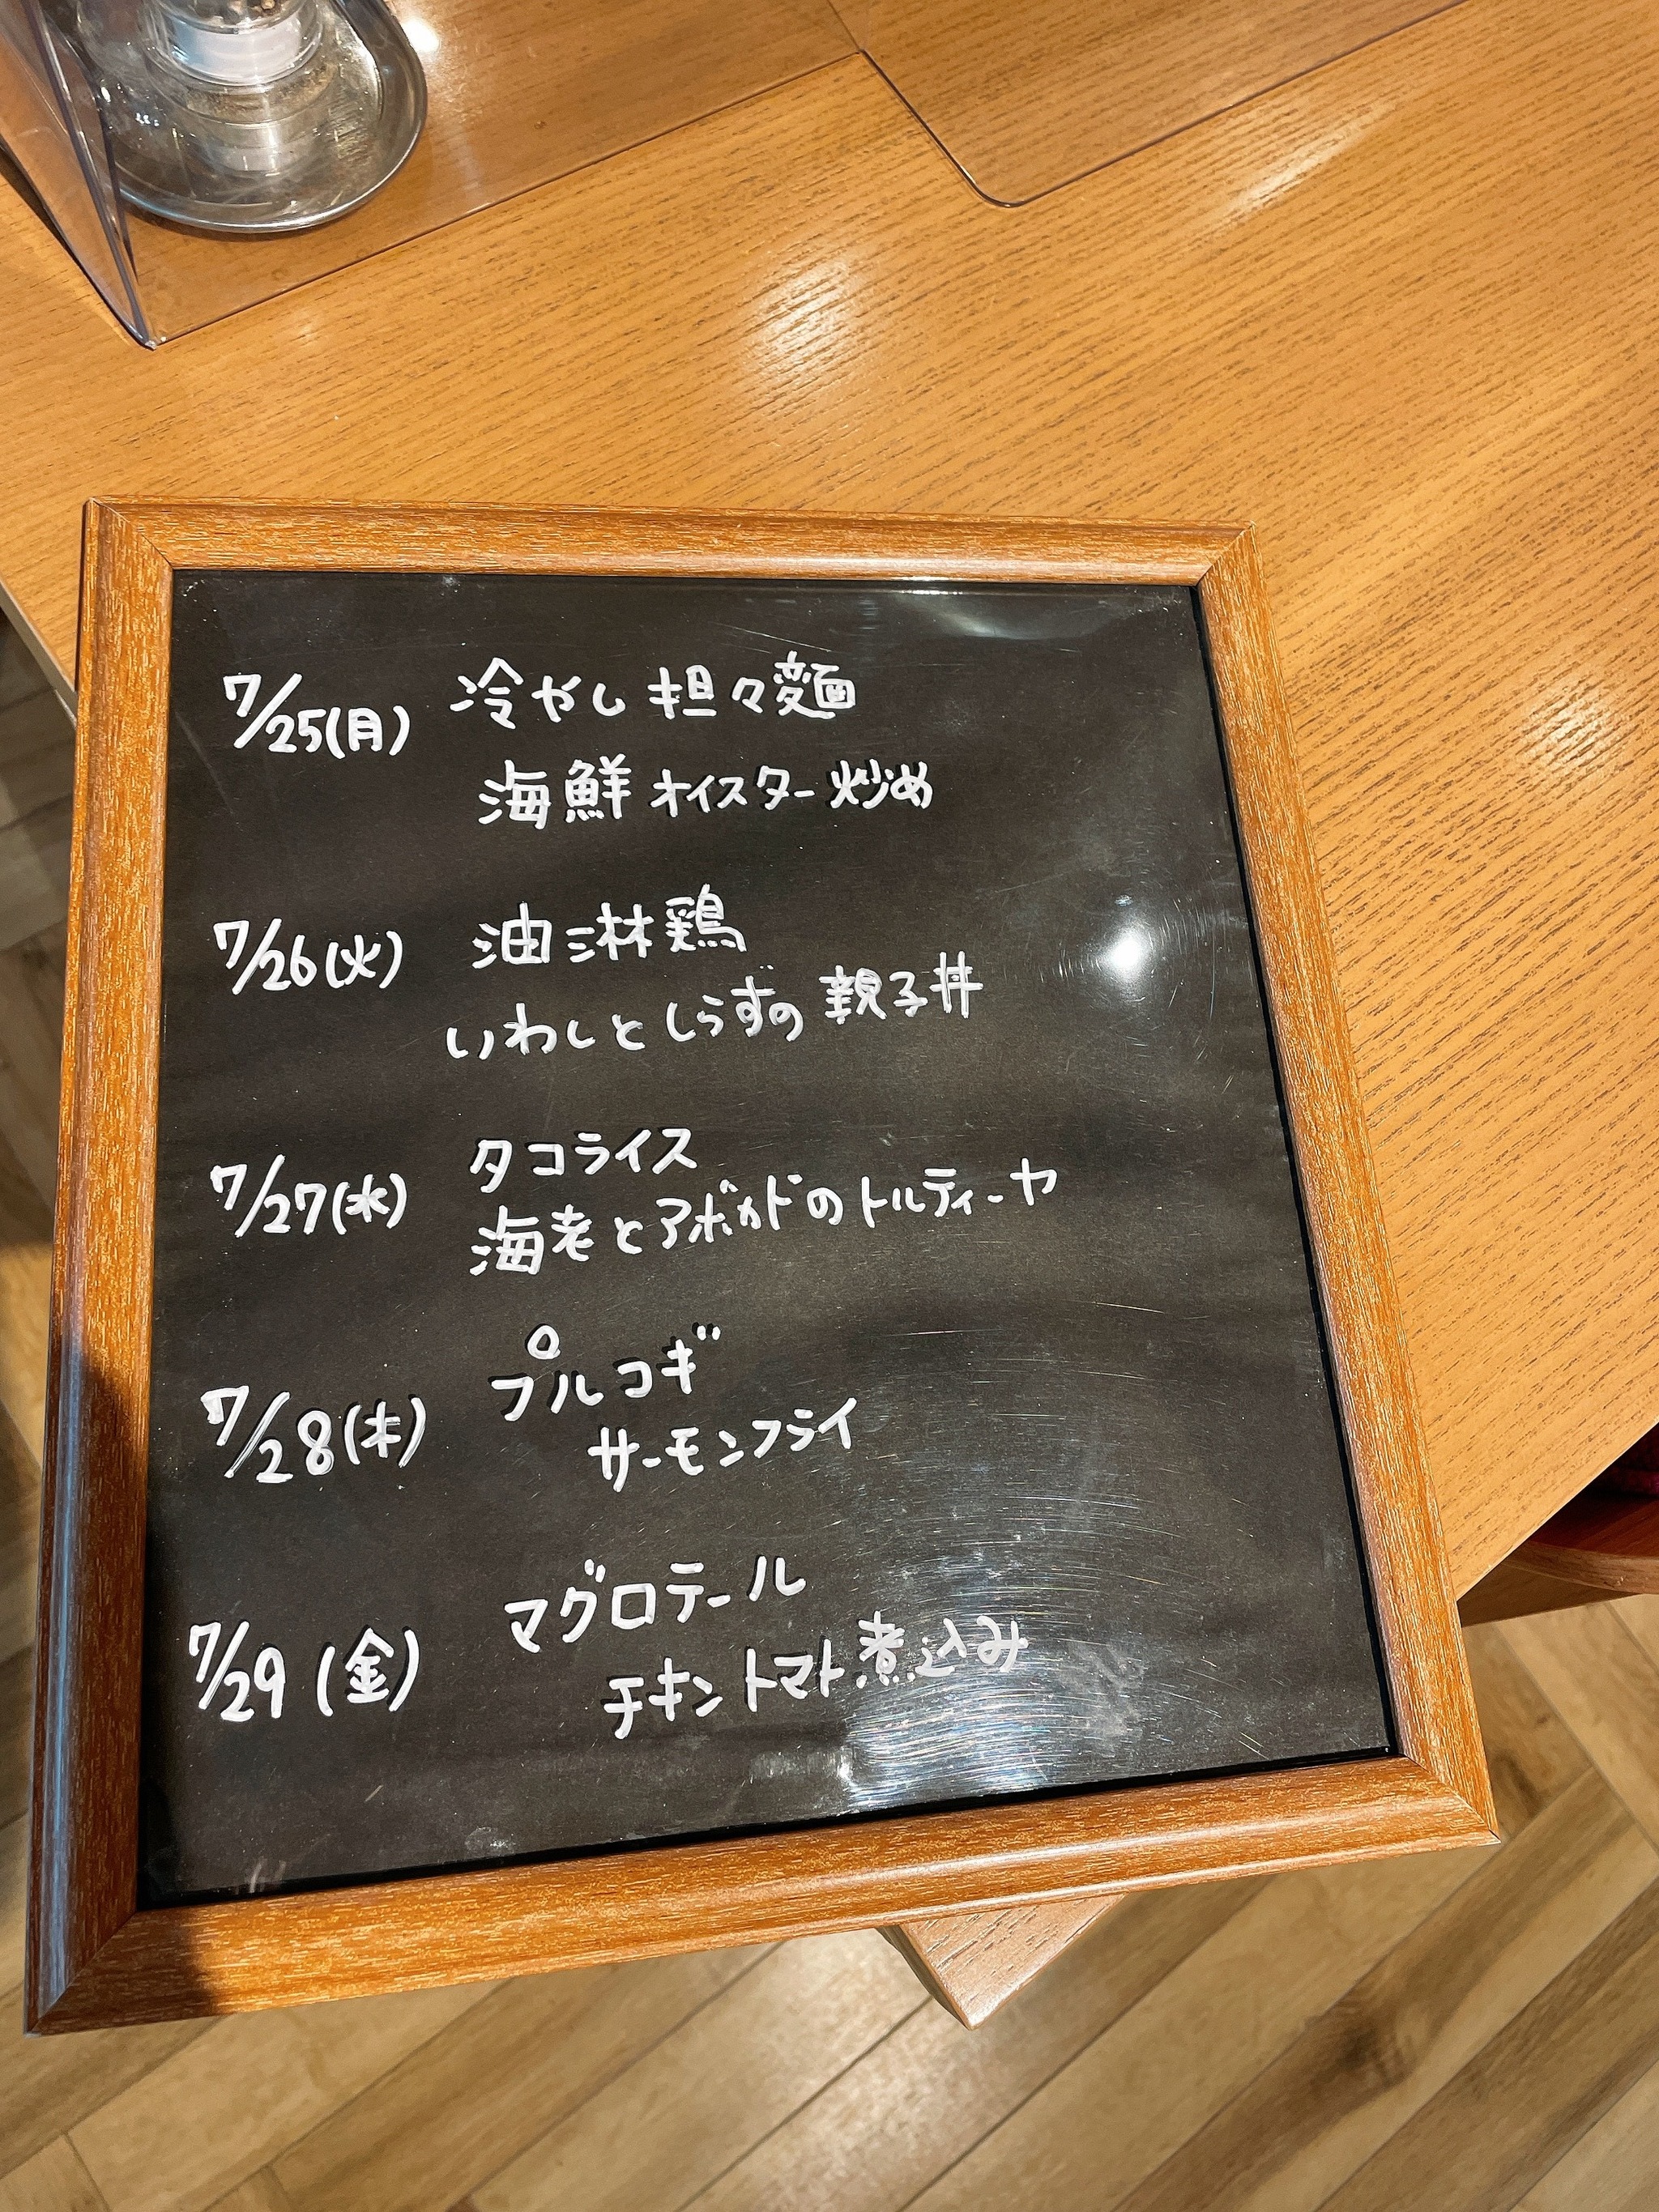 7/25(月) 冷やし担々麺
海鮮オイスター炒め
7/26(火) 油淋鶏
いわしとしらすの親子丼
7/27(水) タコライス
海老とアボカドのトルティーヤ
7/28(木) プルコギ
サーモンフライ
7/29(金) マグロテール
チキントマト煮込み